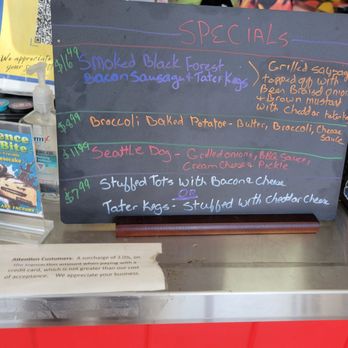 SPECIALS
$16.49
Smoked Black Forest
Bacon Sausage & Tater Kegs
Grilled sausage
topped with
Beer Braised onions
& Brown mustard
with cheddar tater
$8.99
Broccoli Baked Potato - Butter, Broccoli, Cheese
Sauce
$11.99
Seattle Dog - Grilled onions, BBQ Sauce,
Cream Cheese & Pickle
$7.99
Stuffed Tots with Bacon & Cheese
OR
Tater Kegs - Stuffed with Cheddar Cheese
We appreciate
your
Bite
Attention Customers. A surcharge of 3.0%, on
the transaction amount when paying with a
credit card, which is not greater than our cost
of acceptance. We appreciate your business.